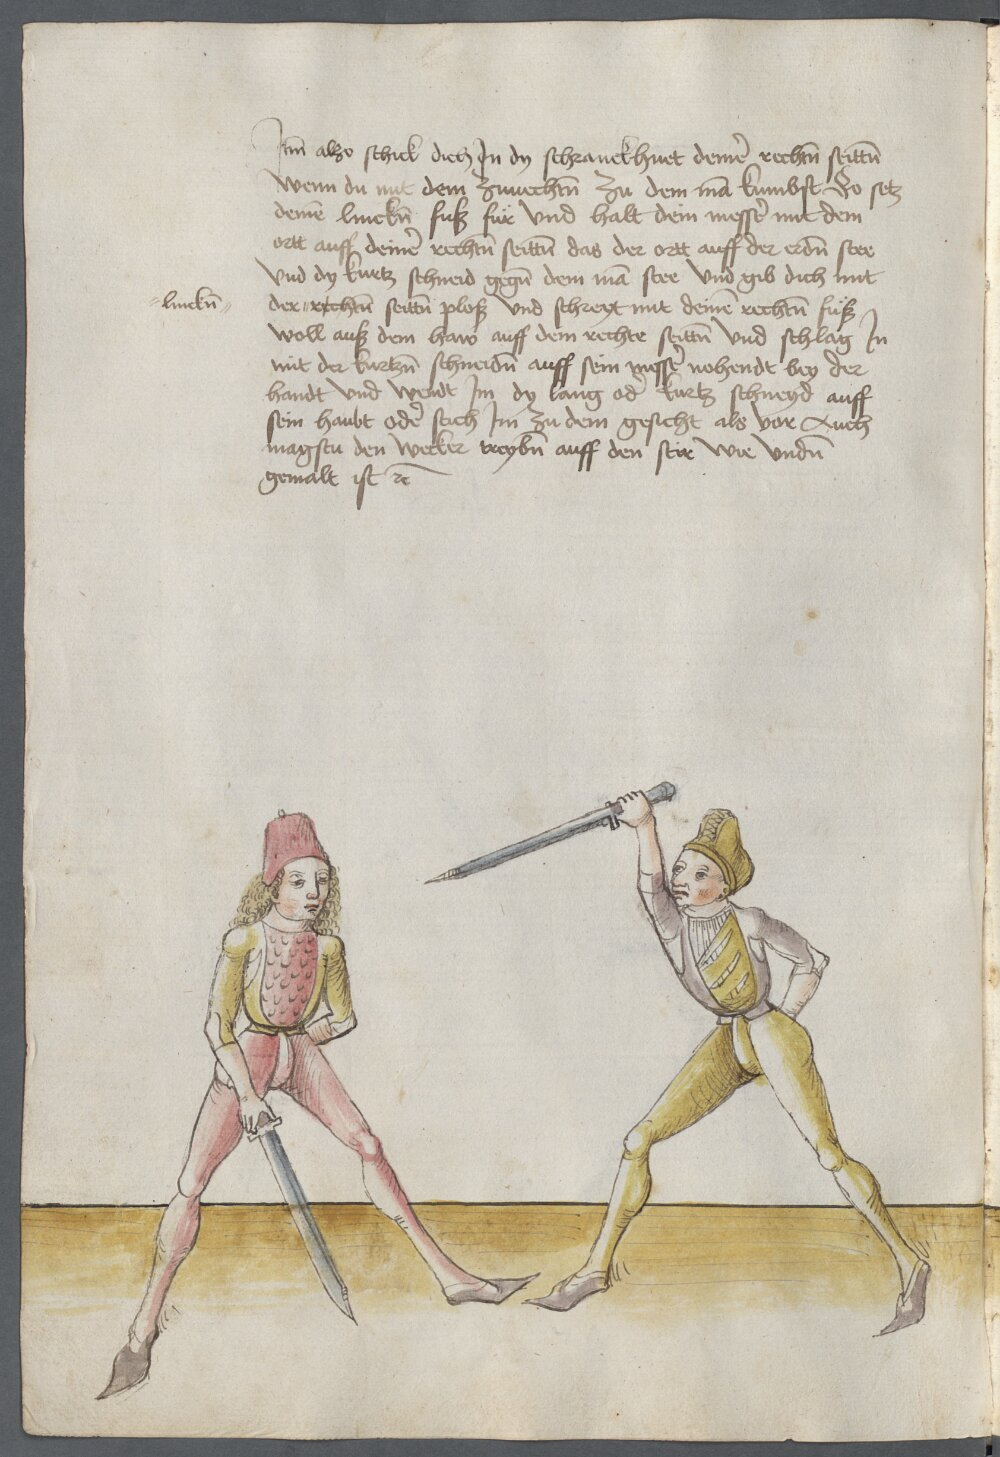 Itm̄ also schick dich In dy schranckhuet deine᷑ rechtn̄ seittn̄
Wenn du mit dem Zuuechtn̄ Zu dem mā kumbst So setz
deinē linckn̄ fuß fur Vnd halt dein messe᷑ mit dem
ortt auff deine᷑ rechtn̄ seittn̄ das der ortt auff der erdn̄ stee
Vnd dy kurtz schneid gegn̄ dem mā stee Vnd gib dich mit
"linckn̄"
der "rechtn̄ seittn̄ ploß Vnd schreyt mit deinē rechtn̄ fuß
woll auß dem haw auff dein rechte seittn̄ Vnd schlag In
mit der kurtzn̄ schneidn̄ auff sein messe᷑ nohendt bey der
handt Vnd wendt Im dy lang od᷑ kurtz schneyd auff
sein haubt ode᷑ stich Im Zu dem gesicht als vor Auch
magstu den wecker treybn̄ auff den stir wie Vndn̄
gemalt ist ꝛc̄